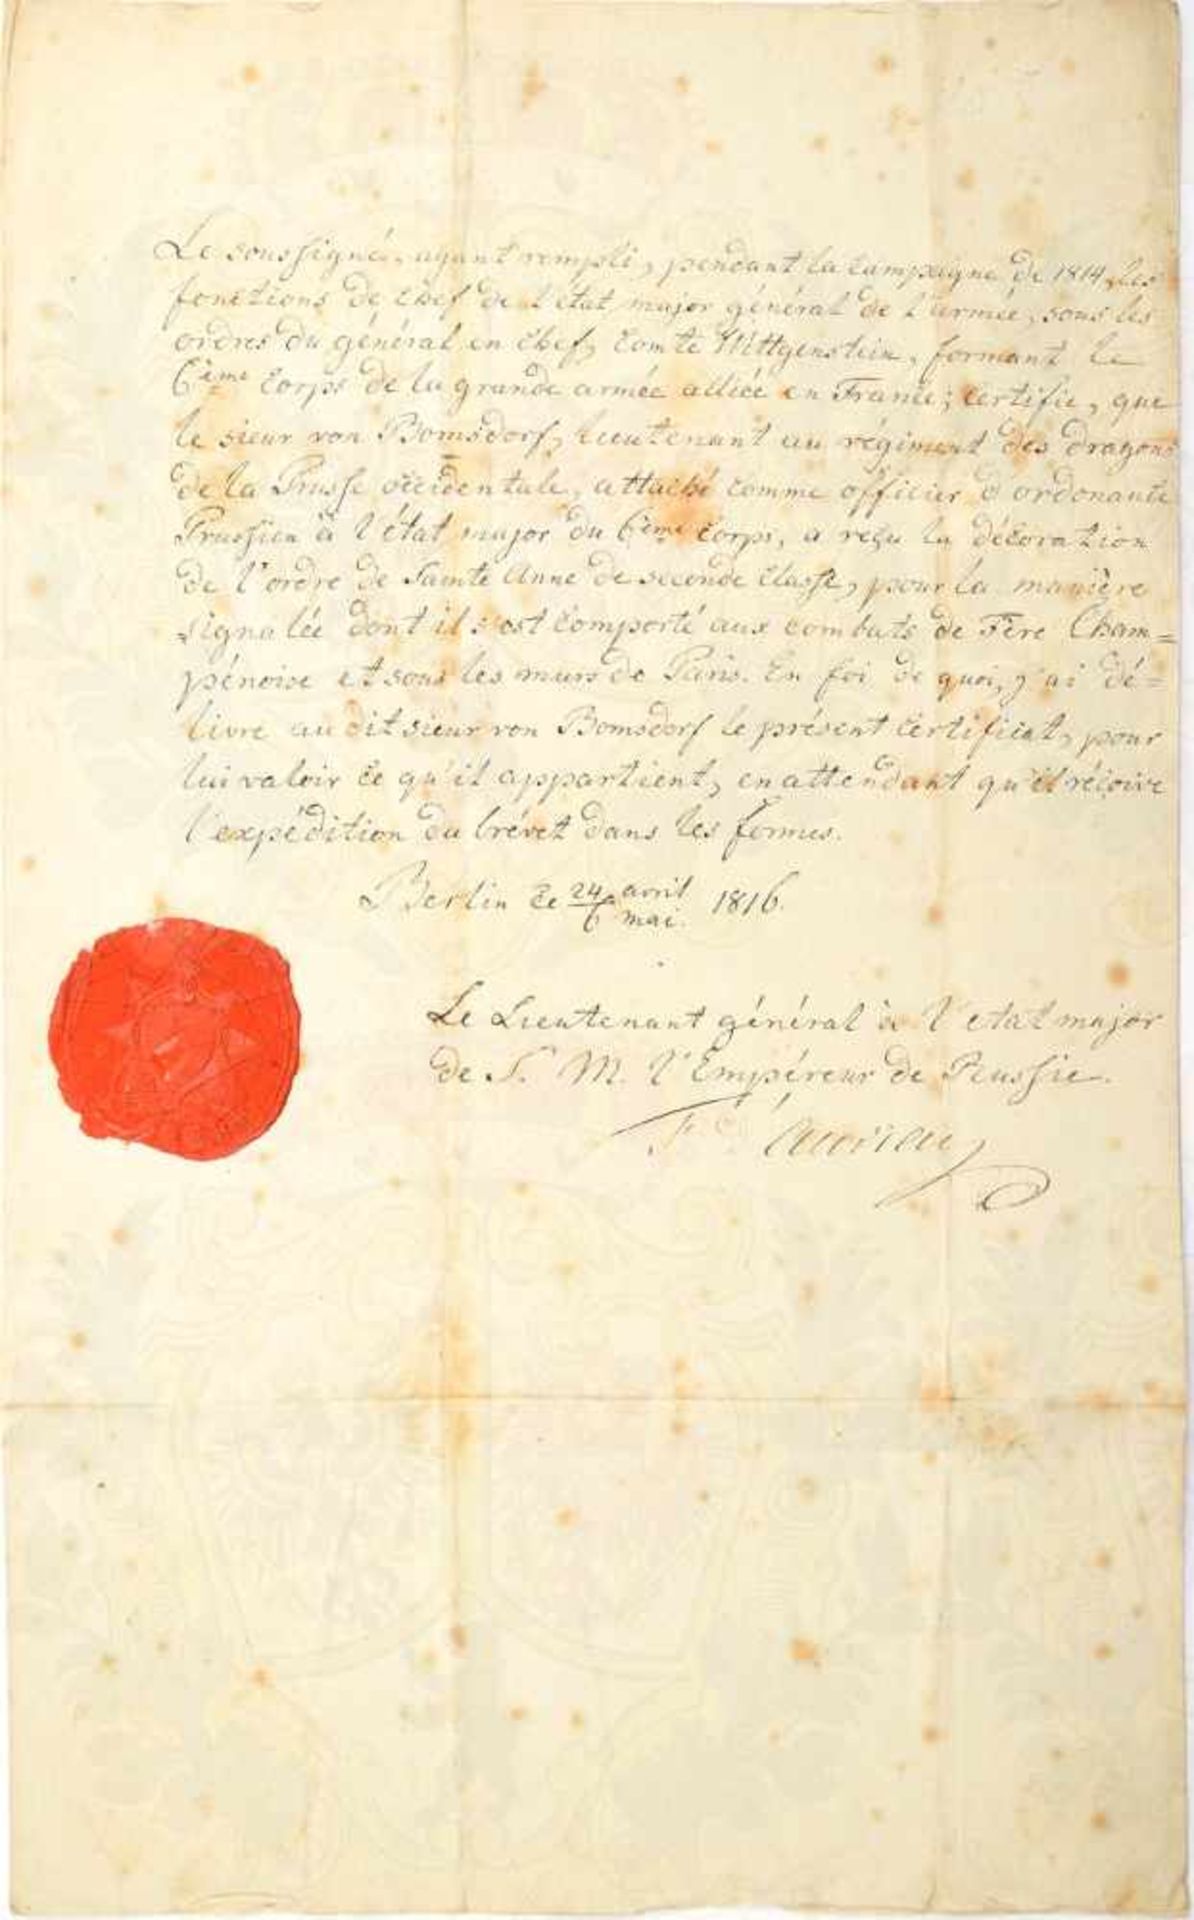 Le soussigné, ayant rempli, pendant la campaigne de 1814, les
fonctions de chef de l'état major général de l'armée, sous les
ordres du général en chef, Comte Wittgenstein, formant le
6ème corps de la grande armée alliée en France; certifie, que
le sieur von Bomsdorf, lieutenant au régiment des dragons
de la Prusse occidentale, attaché comme officier d'ordonante
Prussien à l'état major du 6ème corps, a reçu la décoration
de l'ordre de Sainte Anne de seconde classe, pour la manière
signalée dont il s'est comporté aux combats de Fère Cham=
pénoise et sous les murs de Paris. En foi de quoi, j'ai dé=
livre au dit sieur von Bomsdorf le présent certificat, pour
lui valoir ce qu'il appartient, en attendant qu'il réçoive
l'expédition du brévet dans les formes.
Berlin ce 24 avril / 6 mai. 1816.
Le Lieutenant général à l'etat major
de S. M. l'Empéreur de Russie.